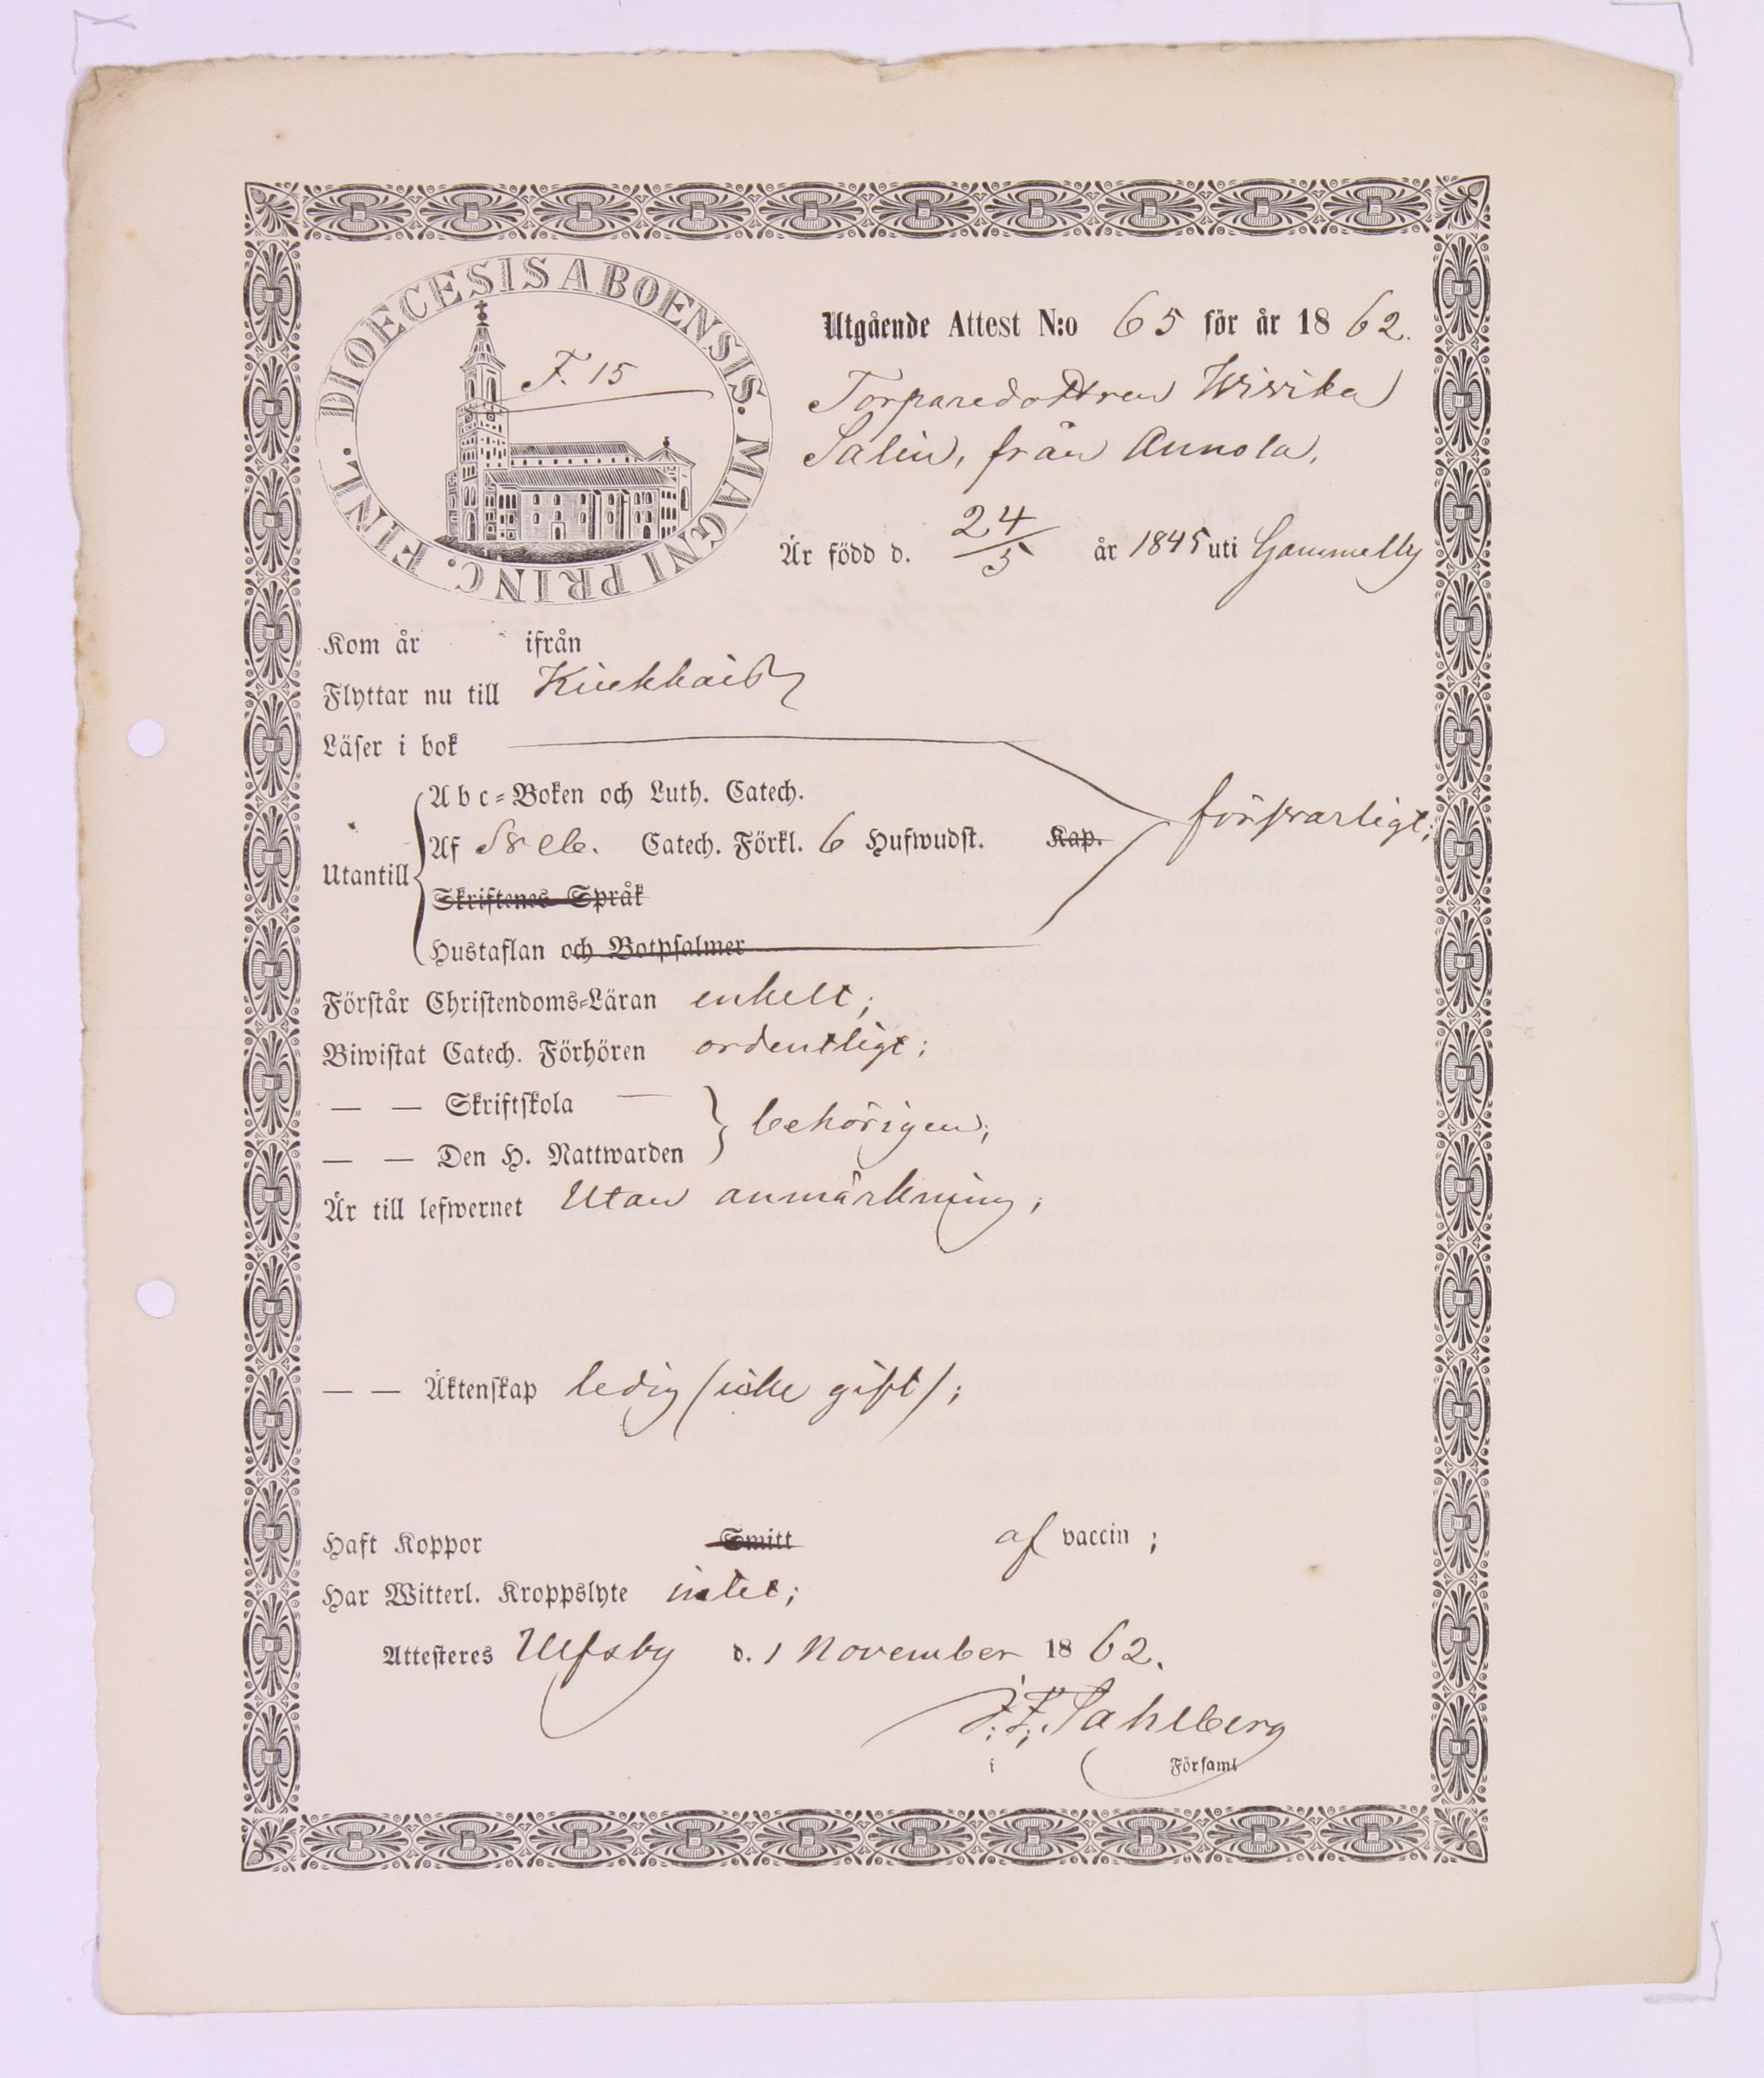 DIOECESIS ABOENSIS. MAGNI PRINC. FINL.
F. 15
Utgående Attest N:o 65 för år 1862.
Torparedottren Wivika
Salin, från Annola,
Är född d. 24/5 år 1845 uti Gammelby
Kom år ifrån
Flyttar nu till
Läser i bok
Abc-Boken och Luth. Catech.
Utantill Af Sveb. Catech. Förkl. 6 Hufwudst. Kap. försvarligt;
Skriftenes Språk
Hustaflan och Botpsalmer
Förstår Christendoms-Läran enkelt;
Biwistat Catech. Förhören ordentligt;
— — Skriftskola —
— — Den H. Nattwarden behörigen;
Är till lefwernet Utan anmärkning;
— — Äktenskap ledig (icke gift);
Haft Koppor Smitt af vaccin;
Har Witterl. Kroppslyte intet;
Attesteres Ulfsby d. 1 November 1862.
J. F. Sahlberg
i Församl